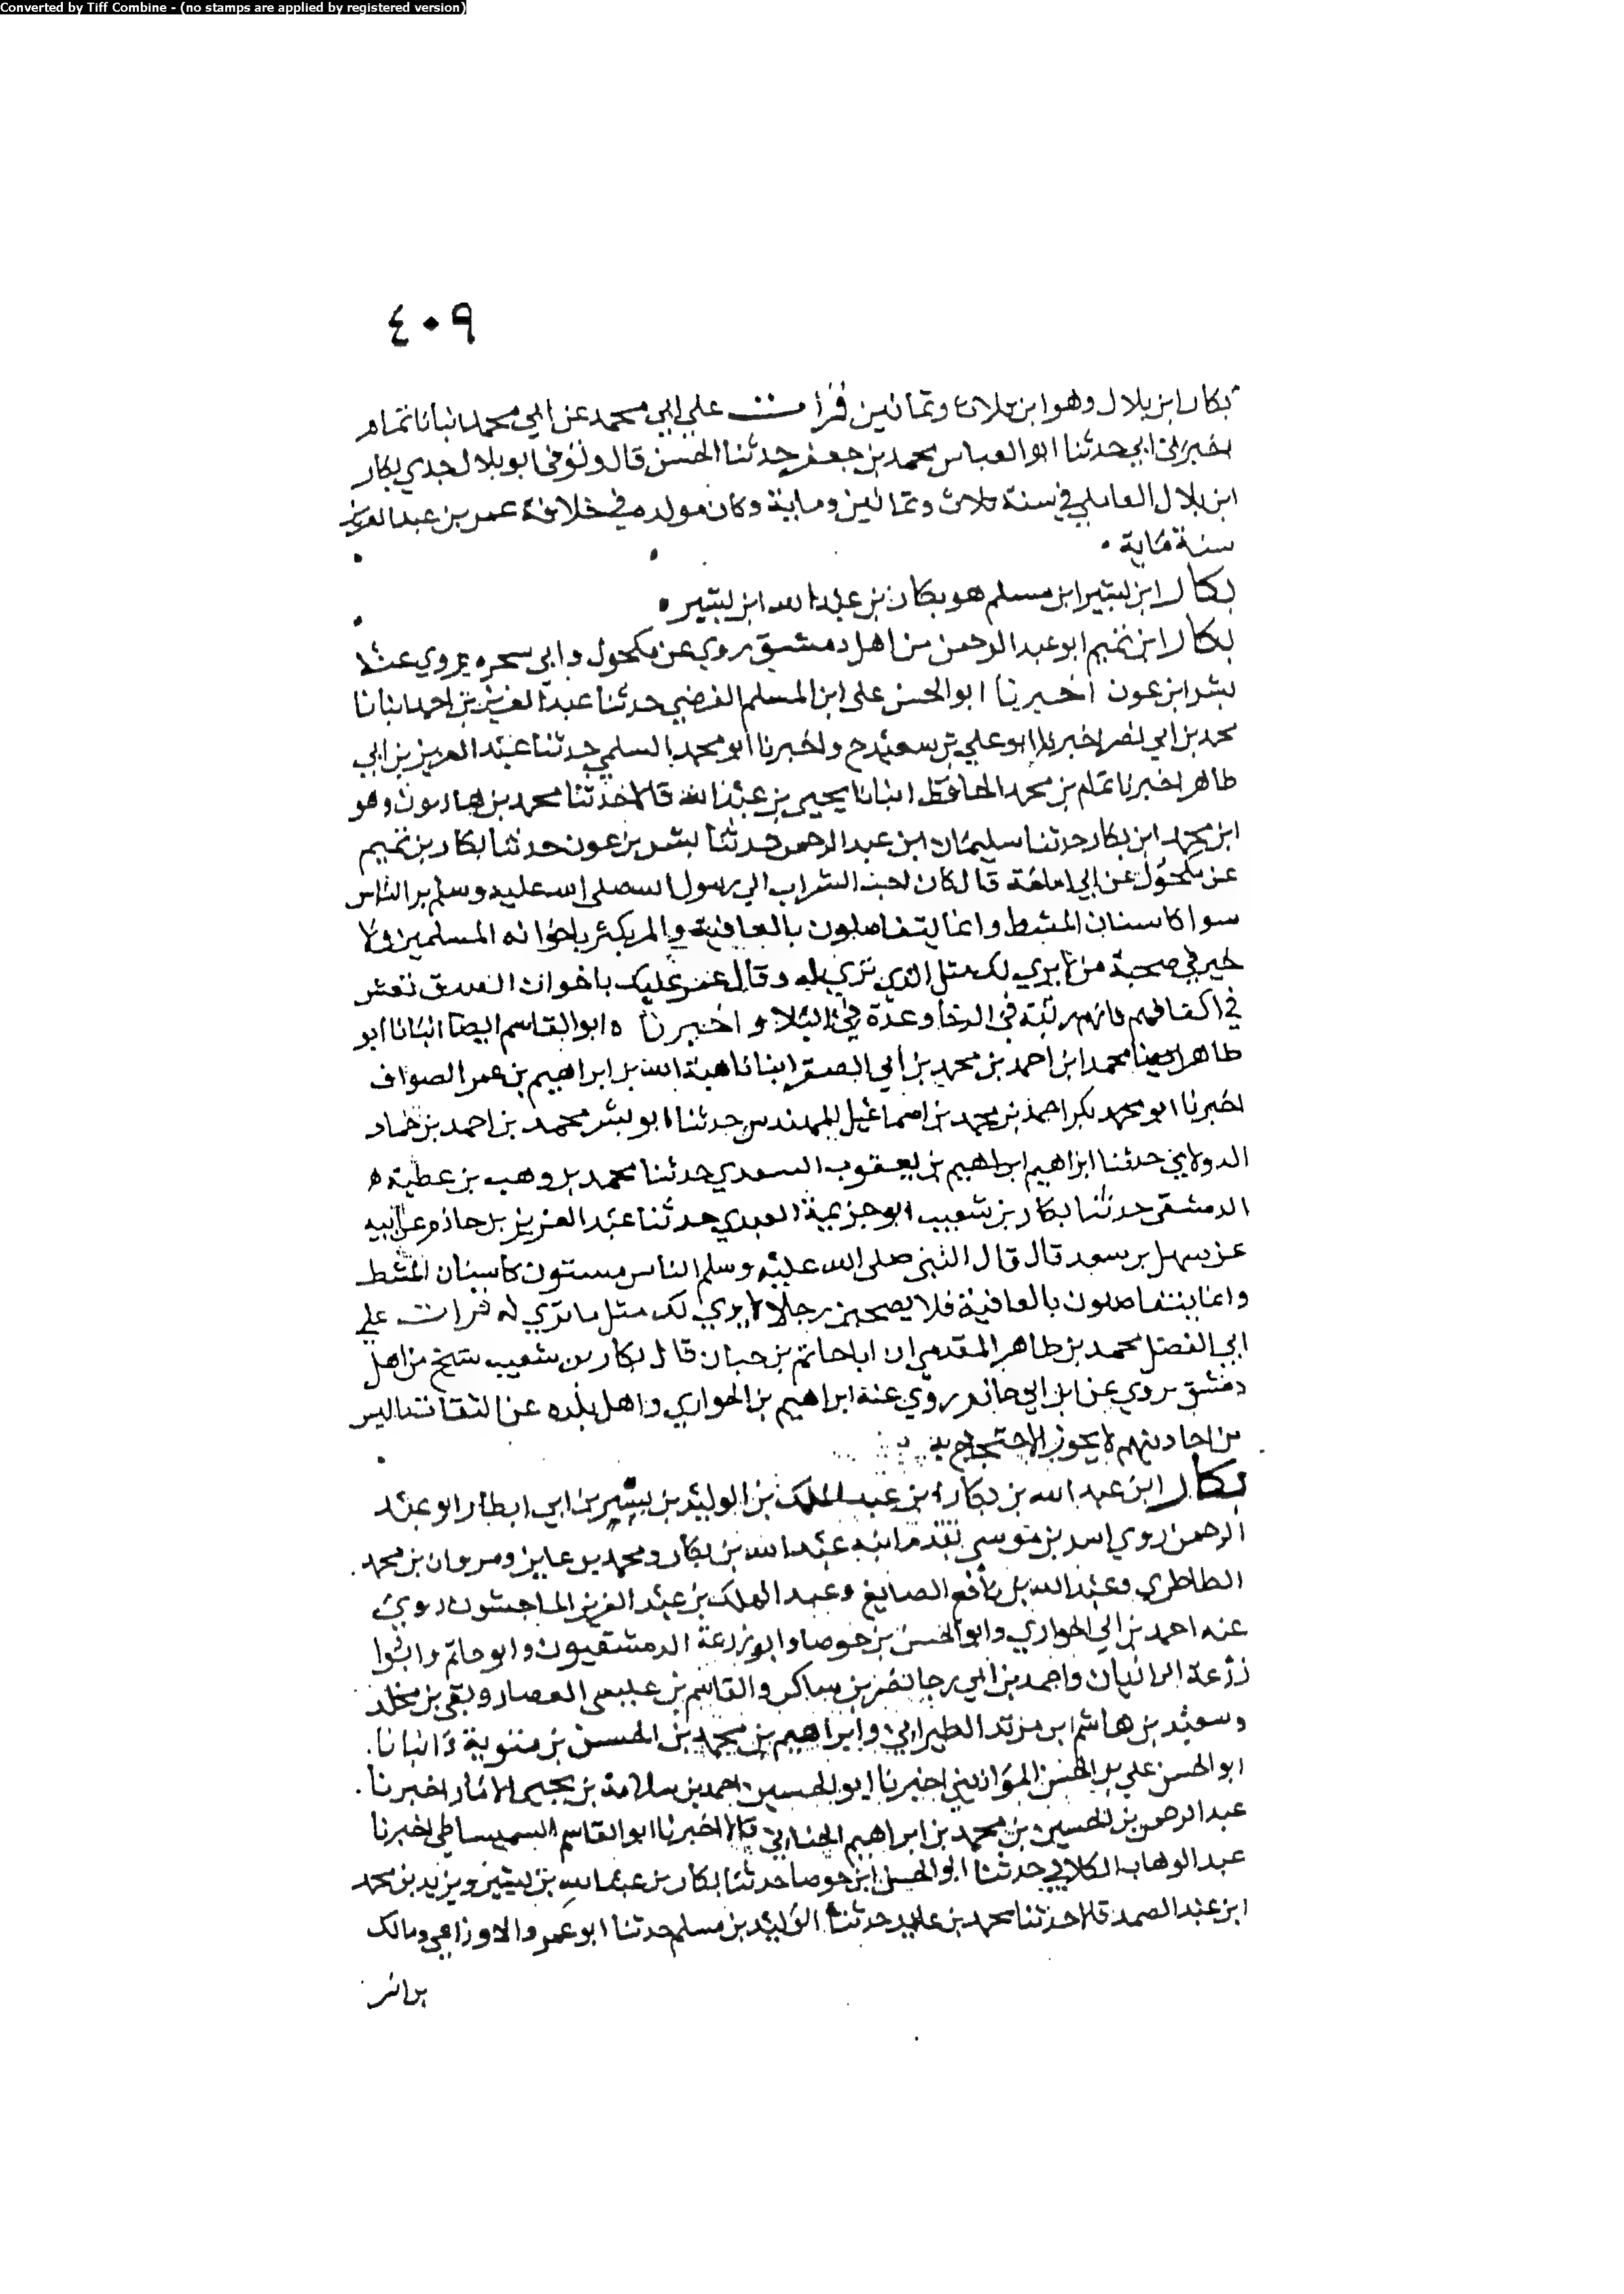 Converted by Tiff Combine - (no stamps are applied by registered version)
٤٠٩
بكار ابن بلال وهو ابن ثلاث وثمانين قرات على ابي محمد عن ابي محمد انبانا تمام
اخبرني ابي حدثنا ابو العباس محمد بن جعفر حدثنا الحسن قال وتوفي ابو بلال جدي بكار
ابن بلال العاملي في سنة ثلاث وثمانين وماية وكان مولده في خلافة عمر بن عبد العزيز
سنة ماية
بكار ابن بشير ابن مسلم هو بكار بن عبد الله ابن بشير
بكار ابن تميم ابو عبد الرحمن من اهل دمشق روي عن مكحول وابي يروي عنه
بشر ابن عون اخبرنا ابو الحسن علي ابن المسلم الفرضي حدثنا عبد العزيز بن احمد انبانا
محمد بن ابي نصر اخبرنا ابو علي بن سعيد ح واخبرنا ابو محمد السلمي حدثنا عبد العزيز بن ابي
طاهر اخبرنا تمام بن محمد الحافظ انبانا يحيى بن عبد الله قالا حدثنا محمد بن هارون وهو
ابن محمد ابن بكار حدثنا سليمان ابن عبد الرحمن حدثنا بشر بن عون حدثنا بكار بن تميم
عن مكحول عن ابي امامة قال كان احب الشراب الي رسول الله صلى الله عليه وسلم الناس
سوا كاسنان المشط وانما يتفاضلون بالعافية والمر يكثر باخوانه المسلمين ولا
خير في صحبة من لا يري لك مثل الذي تري له وقال عمر عليك باخوان الصدق تعش
في اكنافهم فانهم زينة في الرخا وعدة في البلا واخبرنا ه ابو القاسم ايضا انبانا ابو
طاهر محمد ابن احمد بن محمد بن ابي الصقر انبانا هبة الله بن ابراهيم بن عمر الصواف
اخبرنا ابو محمد بكر احمد بن محمد بن اسماعيل المهندس حدثنا ابو بشر محمد بن احمد بن حماد
الدولابي حدثنا ابراهيم ابراهيم بن يعقوب السعدي حدثنا محمد بن وهب بن عطية
الدمشقي حدثنا بكار بن شعيب ابو خزيمة العبدي حدثنا عبد العزيز بن حازم عن ابيه
عن سهل بن سعد قال قال النبي صلى الله عليه وسلم الناس مستون كاسنان المشط
وانما يتفاضلون بالعافية فلا يصحبن رجلا لا يري لك مثل ما تري له قرات على
ابي الفضل محمد بن طاهر المقدسي ان ابا حاتم بن حبان قال بكار بن شعيب شيخ من اهل
دمشق يروي عن ابن ابي حازم روي عنه ابراهيم بن الحواري واهل بلده عن الثقات ما ليس
من احاديثهم لا يجوز الاحتجاج به
بكار ابن عبد الله بن بكار ابن عبد الملك بن الوليد بن بسر بن ابي ارطاه ابو عبد
الرحمن روي اسد بن موسى عبد الله بن بكار ومحمد بن عايذ ومروان بن محمد
الطاطري وعبد الله بن نافع الصايغ وعبد الملك بن عبد العزيز الماجشون روي
عنه احمد بن ابي الحواري وابو الحسن بن جوصا وابو زرعة الدمشقيون وابو حاتم وابوا
زرعة الرازيان واحمد بن ابي رجا نصر بن شاكر والقاسم بن عيسى العصار وبقي بن مخلد
وسعيد بن هاشم ابن مرثد الطبراني وابراهيم بن محمد بن الحسن بن متوية انبانا
ابو الحسن علي بن الحسن الموازيني اخبرنا ابو الحسين احمد بن سلامة بن يحيى اخبرنا
عبد الرحمن بن الحسين بن محمد بن ابراهيم الحناني قالا اخبرنا ابو القاسم السميساطي اخبرنا
عبد الوهاب الكلابي حدثنا ابو الحسن ابن جوصا حدثنا بكار بن عبد الله بن بشير ويزيد بن محمد
ابن عبد الصمد قالا حدثنا محمد بن عايد حدثنا الوليد بن مسلم حدثنا ابو عمرو الاوزاعي ومالك
بن انس